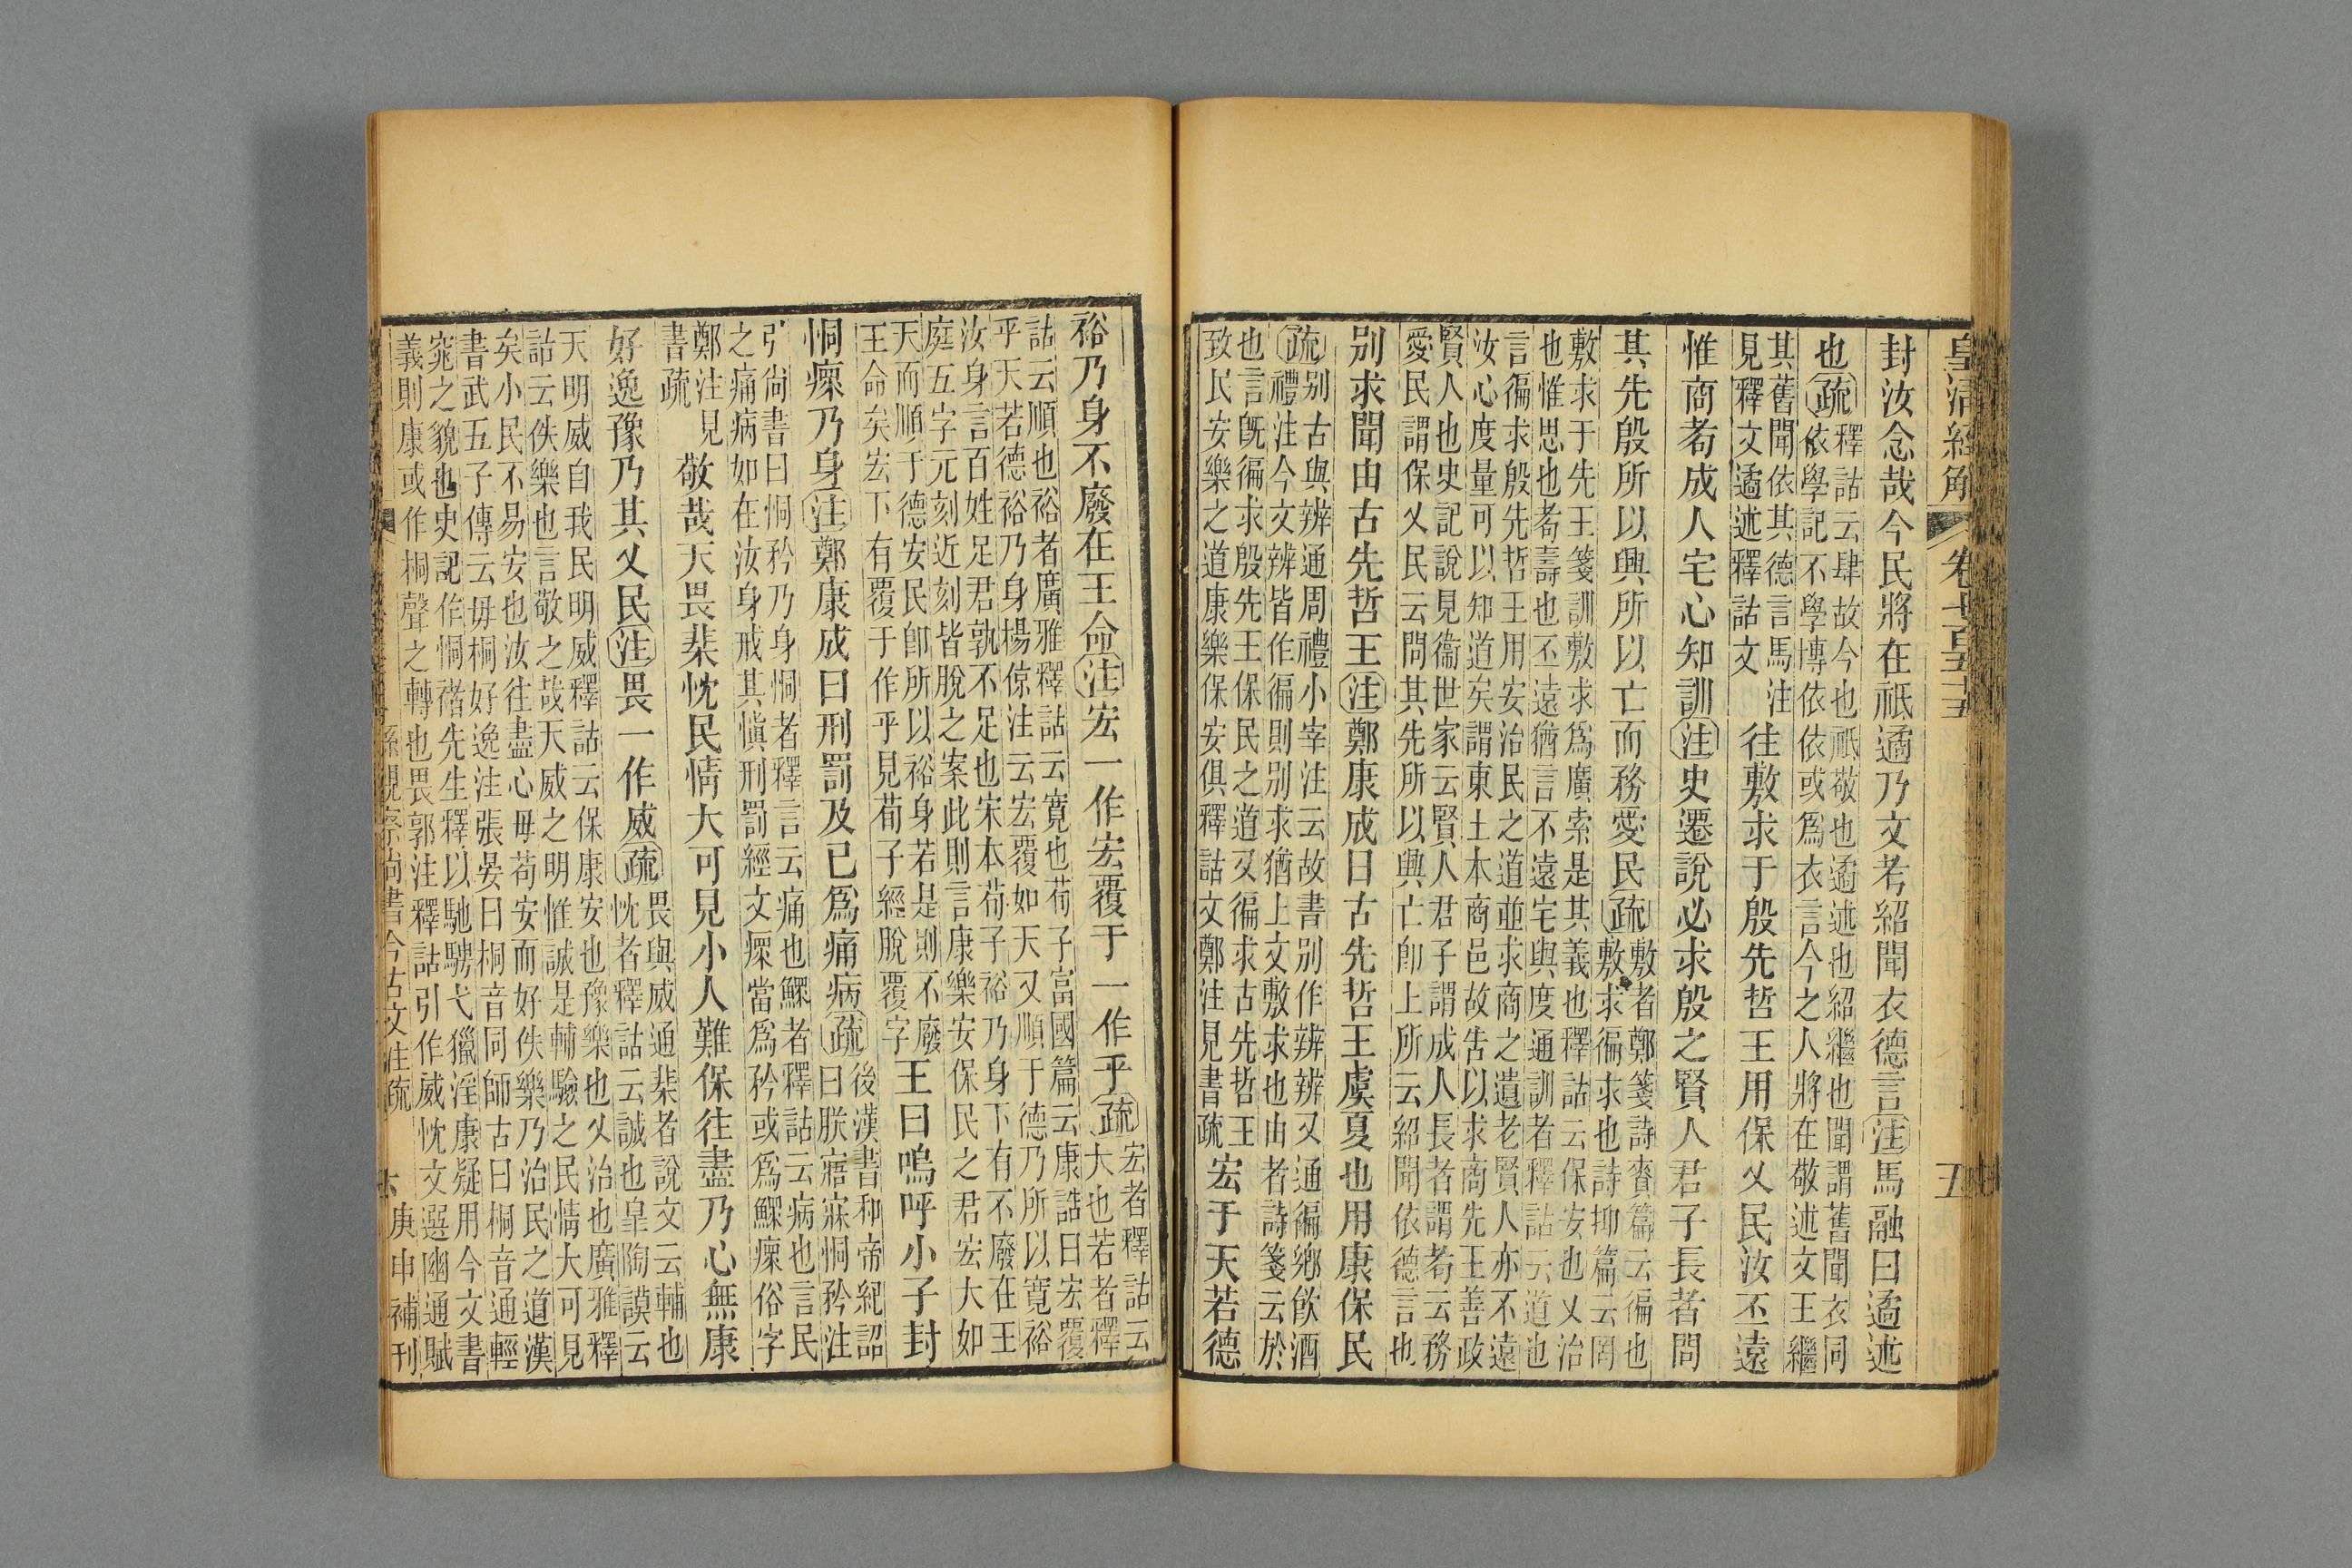 皇清經解 卷七百五十五 五
封汝念哉今民將在祗遹乃文考紹聞衣德言注馬融曰遹述
也疏
釋詁云肆故今也祗敬也遹述也紹繼也聞謂舊聞衣同
依學記不學博依依或爲衣言今之人將在敬述文王繼
其舊聞依其德言馬注
見釋文遹述釋詁文
往敷求于殷先哲王用保乂民汝丕遠
惟商耇成人宅心知訓注史遷說必求殷之賢人君子長者問
其先殷所以興所以亡而務愛民疏
敷者鄭箋詩賚篇云徧也
敷求徧求也詩抑篇云罔
敷求于先王箋訓敷求爲廣索是其義也釋詁云保安也乂治
也惟思也耇壽也丕遠猶言不遠宅與度通訓者釋詁云道也
言徧求殷先哲王用安治民之道並求商之遺老賢人亦不遠
汝心度量可以知道矣謂東土本商邑故告以求商先王善政
賢人也史記說見衞世家云賢人君子謂成人長者謂耇云務
愛民謂保乂民云問其先所以興亡卽上所云紹聞依德言也
别求聞由古先哲王注鄭康成曰古先哲王虞夏也用康保民
疏
别古與辨通周禮小宰注云故書别作辨辨又通徧鄕飲酒
禮注今文辨皆作徧則别求猶上文敷求也由者詩箋云於
也言旣徧求殷先王保民之道又徧求古先哲王
致民安樂之道康樂保安俱釋詁文鄭注見書疏
宏于天若德
裕乃身不廢在王命注宏一作宏覆于一作乎疏
宏者釋詁云
大也若者釋
詁云順也裕者廣雅釋詁云寬也荀子富國篇云康誥曰宏覆
乎天若德裕乃身楊倞注云宏覆如天又順于德乃所以寬裕
汝身言百姓足君孰不足也宋本荀子裕乃身下有不廢在王
庭五字元刻近刻皆脫之案此則言康樂安保民之君宏大如
天而順于德安民卽所以裕身若是則不廢
王命矣宏下有覆于作乎見荀子經脫覆字
王曰嗚呼小子封
恫瘝乃身注鄭康成曰刑罰及已爲痛病疏
後漢書和帝紀詔
曰朕寤寐恫矜注
引尚書曰恫矜乃身恫者釋言云痛也鰥者釋詁云病也言民
之痛病如在汝身戒其愼刑罰經文瘝當爲矜或爲鰥瘝俗字
鄭注見
書疏
敬哉天畏棐忱民情大可見小人難保往盡乃心無康
好逸豫乃其乂民注畏一作威疏
畏與威通棐者說文云輔也
忱者釋詁云誠也皐陶謨云
天明威自我民明威釋詁云保康安也豫樂也乂治也廣雅釋
詁云佚樂也言敬之哉天威之明惟誠是輔驗之民情大可見
矣小民不易安也汝往盡心毋苟安而好佚樂乃治民之道漢
書武五子傳云毋桐好逸注張晏曰桐音同師古曰桐音通輕
脫之貌也史記作恫褚先生釋以馳騁弋獵淫康疑用今文書
義則康或作桐聲之轉也畏郭注釋詁引作威忱文選幽通賦
孫觀察尚書今古文注疏 六 庚申補刊